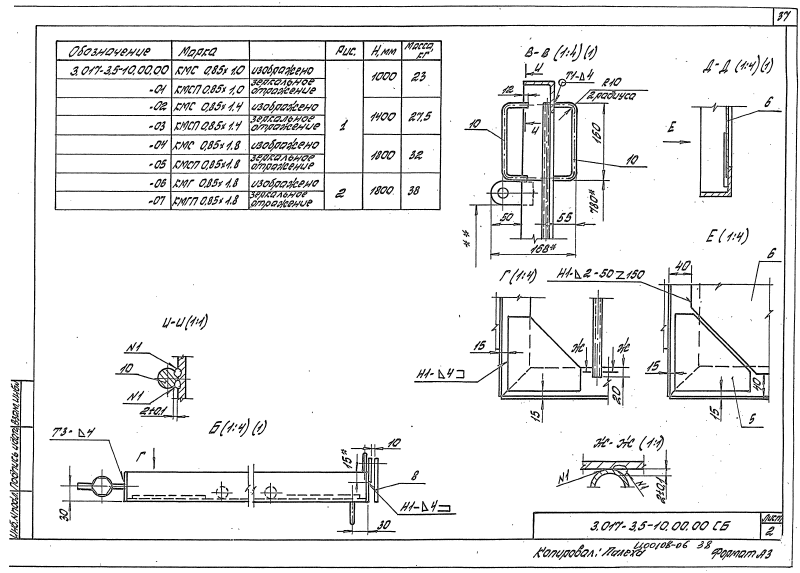 37
Обозначение Марка Рис. Н, мм Масса, кг
3.017-3,5-10.00.00 КМС 0,85х1.0 изображено 1 1000 23
-01 КМСП 0,85х1,0 зеркальное отражение
-02 КМС 0,85х1.4 изображено 1400 27,5
-03 КМСП 0,85х1.4 зеркальное отражение
-04 КМС 0,85х1.8 изображено 1800 32
-05 КМСП 0,85х1.8 зеркальное отражение
-06 КМГ 0,85х1.8 изображено 2 1800 38
-07 КМГП 0,85х1.8 зеркальное отражение
В-В (1:4) (1)
И
Т1-Δ4
12
R10
2 радиуса
10
И
160
10
780*
50
55
168*
**
Д-Д (1:4)(1)
6
Е
Е (1:4)
40
6
15
40
15
5
Г (1:4)
Н1-Δ2-50Z150
15
Н1-Δ4⊐
Ж Ж
20
15
И-И (1:1)
N1
10
N1
2±0,1
Б (1:4) (1)
Т3-Δ4
Г
15*
10
8
Н1-Δ4⊐
30
30
Ж-Ж (1:1)
N1
N1
2±0,1
3.017-3,5-10.00.00 СБ
Лист
2
Ц00108-06 38
Копировал: Формат А3
Инв.№подл. Подпись и дата Взам.инв.№